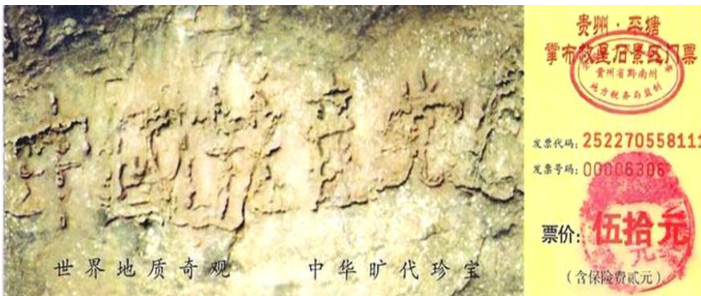 中國共产党
世界地质奇观 中华旷代珍宝
贵州·平塘
掌布救星石景区门票
贵州省黔南州
地方税务局监制
发票代码：252270558111
发票号码：00006306
票价：伍拾元
（含保险费贰元）